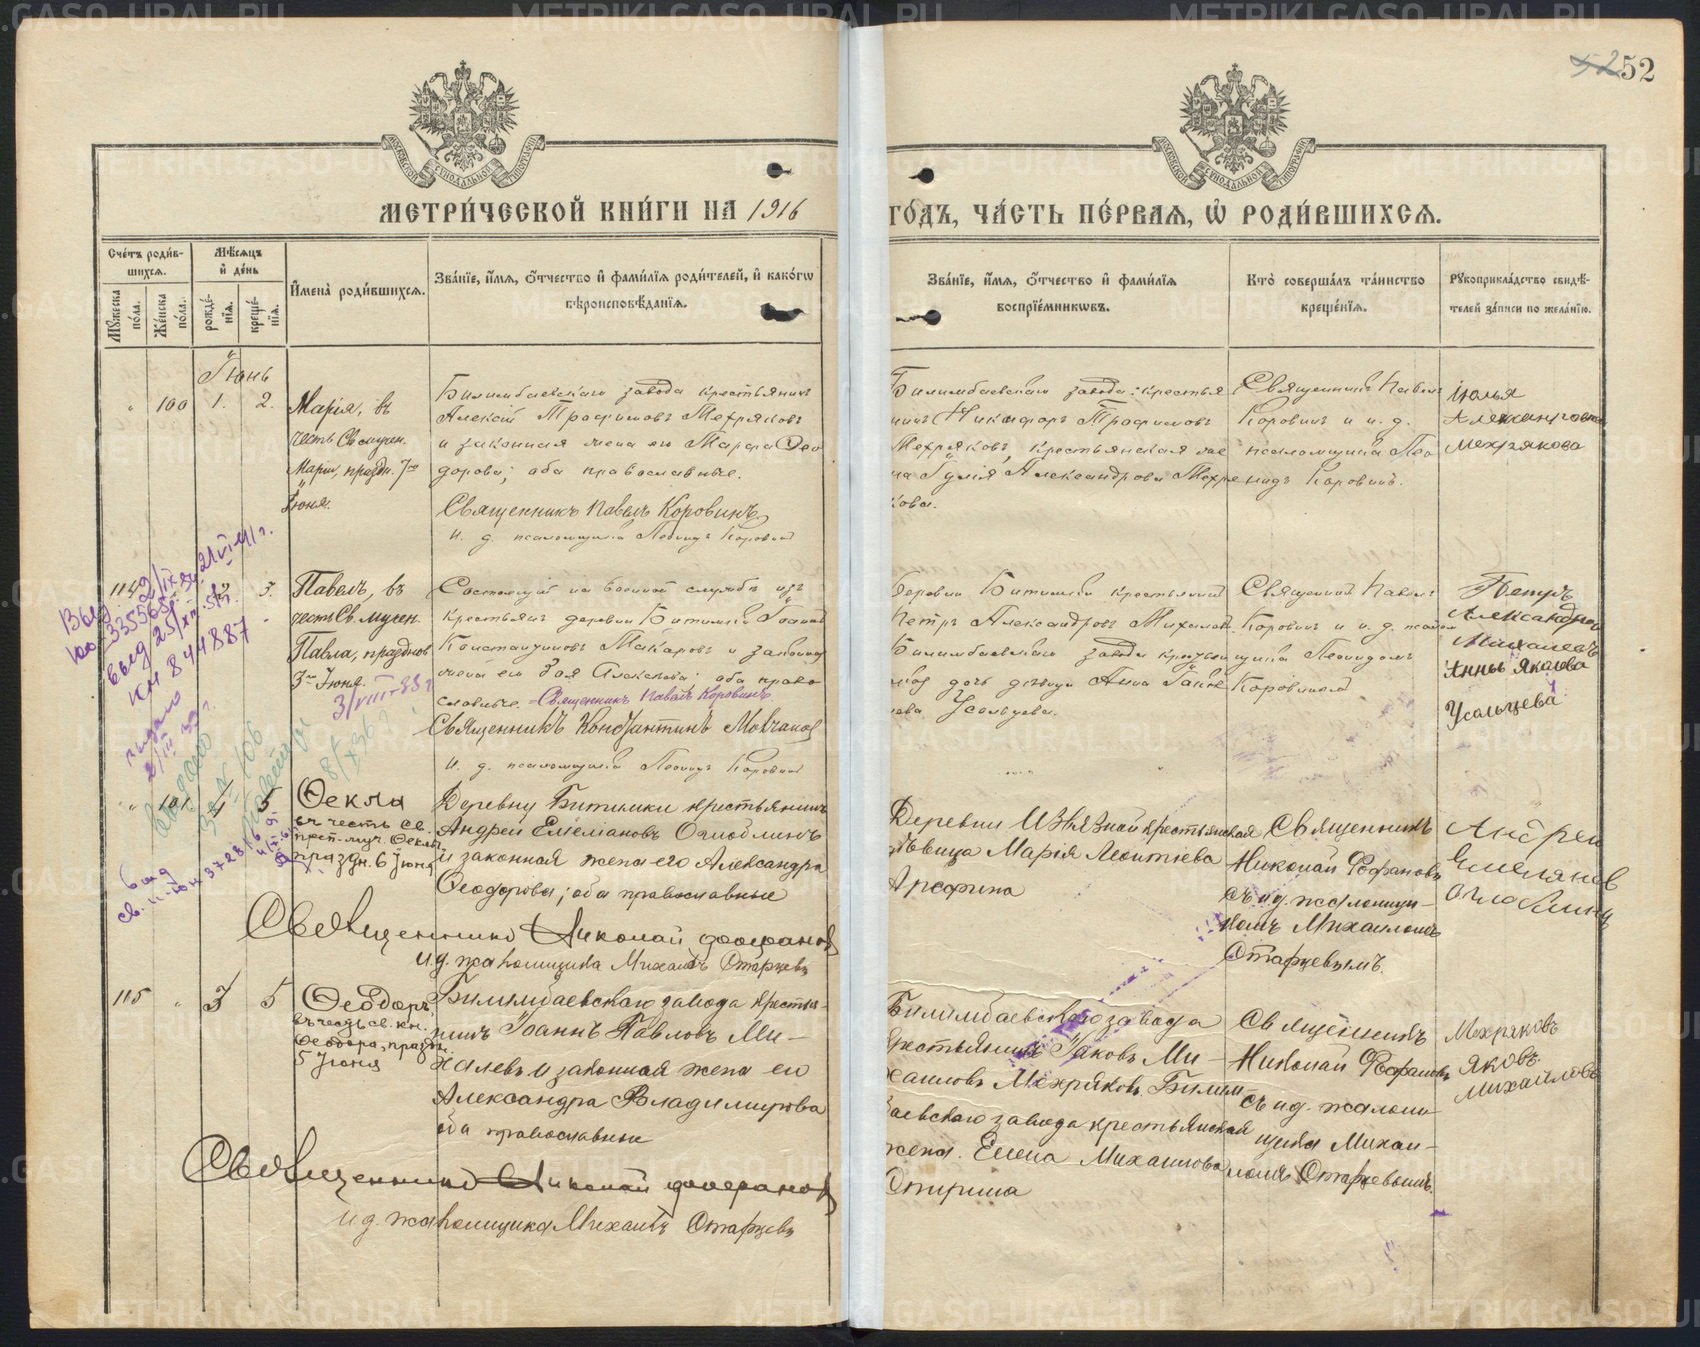 52 52
МОСКОВСКОЙ СѴНОДАЛЬНОЙ ТИПОГРАФІИ
МОСКОВСКОЙ СѴНОДАЛЬНОЙ ТИПОГРАФІИ
МЕТРИ́ЧЕСКОЙ КНИ́ГИ НА 1916
ГО́ДЪ, ЧА́СТЬ ПЕ́РВАЯ, Ѡ҆ РОДИ́ВШИХСЯ.
Сче́тъ роди́в-
шихся.
Мѣ́сяцъ
и҆ де́нь
Мꙋ́жеска по́ла.
Же́нска по́ла.
рожде́-нїя.
креще́-нїя.
И҆мена̀ роди́вшихся.
Зва́нїе, и҆́мя, ѻ҆́тчество и҆ фами́лїя роди́телей, и҆ како́гѡ
вѣроисповѣ́данїя.
Зва́нїе, и҆́мя, ѻ҆́тчество и҆ фами́лїя
воспрїе́мникѡвъ.
Кто̀ соверша́лъ та́инство
креще́нїя.
Рꙋкоприкла́дство свидѣ́-
телей за́писи по жела́нїю.
Іюнь
„ 100 1. 2.
Марія, въ
честь Св. мучен.
Маріи, праздн. 7го
Іюня.
Билимбаевскаго завода крестьянинъ
Алексій Трофимовъ Мехряковъ
и законная жена его Марѳа Ѳео
дорова; оба православные.
Священникъ Павелъ Коровинъ
и. д. псаломщика Леонидъ Коровинъ
Билимбаевскаго завода: крестья
нинъ Никифоръ Трофимовъ
Мехряковъ, крестьянская же
на Іулія Александрова Мехря
кова.
Священникъ Павелъ
Коровинъ и и. д.
псаломщика Лео
нидъ Коровинъ.
Іюлья
Александровна
Мехрякова
114 2. 3.
Павелъ, въ
честь Св. мучен.
Павла, празднов.
3го Іюня.
Состоящій на военной службѣ изъ
крестьянъ деревни Битимки Іоаннъ
Константиновъ Макаровъ и законная
жена его Зоя Алексѣева; оба право
славные. Священникъ Павелъ Коровинъ
Священникъ Константинъ Молчановъ
и. д. псаломщика Леонидъ Коровинъ
Деревни Битимки крестьянинъ
Петръ Александровъ Михалевъ
Билимбаевскаго завода крестьян
ская дочь девица Анна Яков
лева Усольцева.
Священникъ Павелъ
Коровинъ и и. д. псалом
щика Леонидомъ
Коровинымъ
Петръ
Александров
Михалевъ
Анна Яковлева
Усольцева
Выд.
335565
выд 25/XII-51г.
КМ 844887
3/VIII 33 г
„ 101 5
Ѳекла
въ честь св.
преп.-муч. Ѳеклы
праздн. 6 Іюня
Деревни Битимки крестьянинъ
Андрей Емеліановъ Оглоблинъ
и законная жена его Александра
Ѳеодорова; оба православные
Священникъ Николай Фофановъ
и.д. псаломщика Михаилъ Старцевъ
Деревни Извязной крестьянская
дѣвица Марія Леонтіева
Арефина
Священникъ
Николай Фофановъ
съ и.д. псаломщи-
комъ Михаиломъ
Старцевымъ.
Андрей
Емеляновъ
115 „ 3 5
Ѳеодоръ,
въ честь св. кн.
Ѳеодора, праздн.
5 Іюня
Билимбаевскаго завода крестья-
нинъ Іоаннъ Павловъ Ми-
халевъ и законная жена его
Александра Владимирова
оба православные
Священникъ Николай Фофановъ
и.д. псаломщика Михаилъ Старцевъ
Билимбаевскаго завода
крестьянинъ Іаковъ Ми-
хаиловъ Мехряковъ. Билим-
баевскаго завода крестьянская
жена Елена Михаилова
Спирина
Священникъ
Николай Фофановъ
съ и.д. псалом-
щика Михаи-
ломъ Старцевымъ.
Мехряковъ
Яковъ
Михайловъ
METRIKI.GASO-URAL.RU